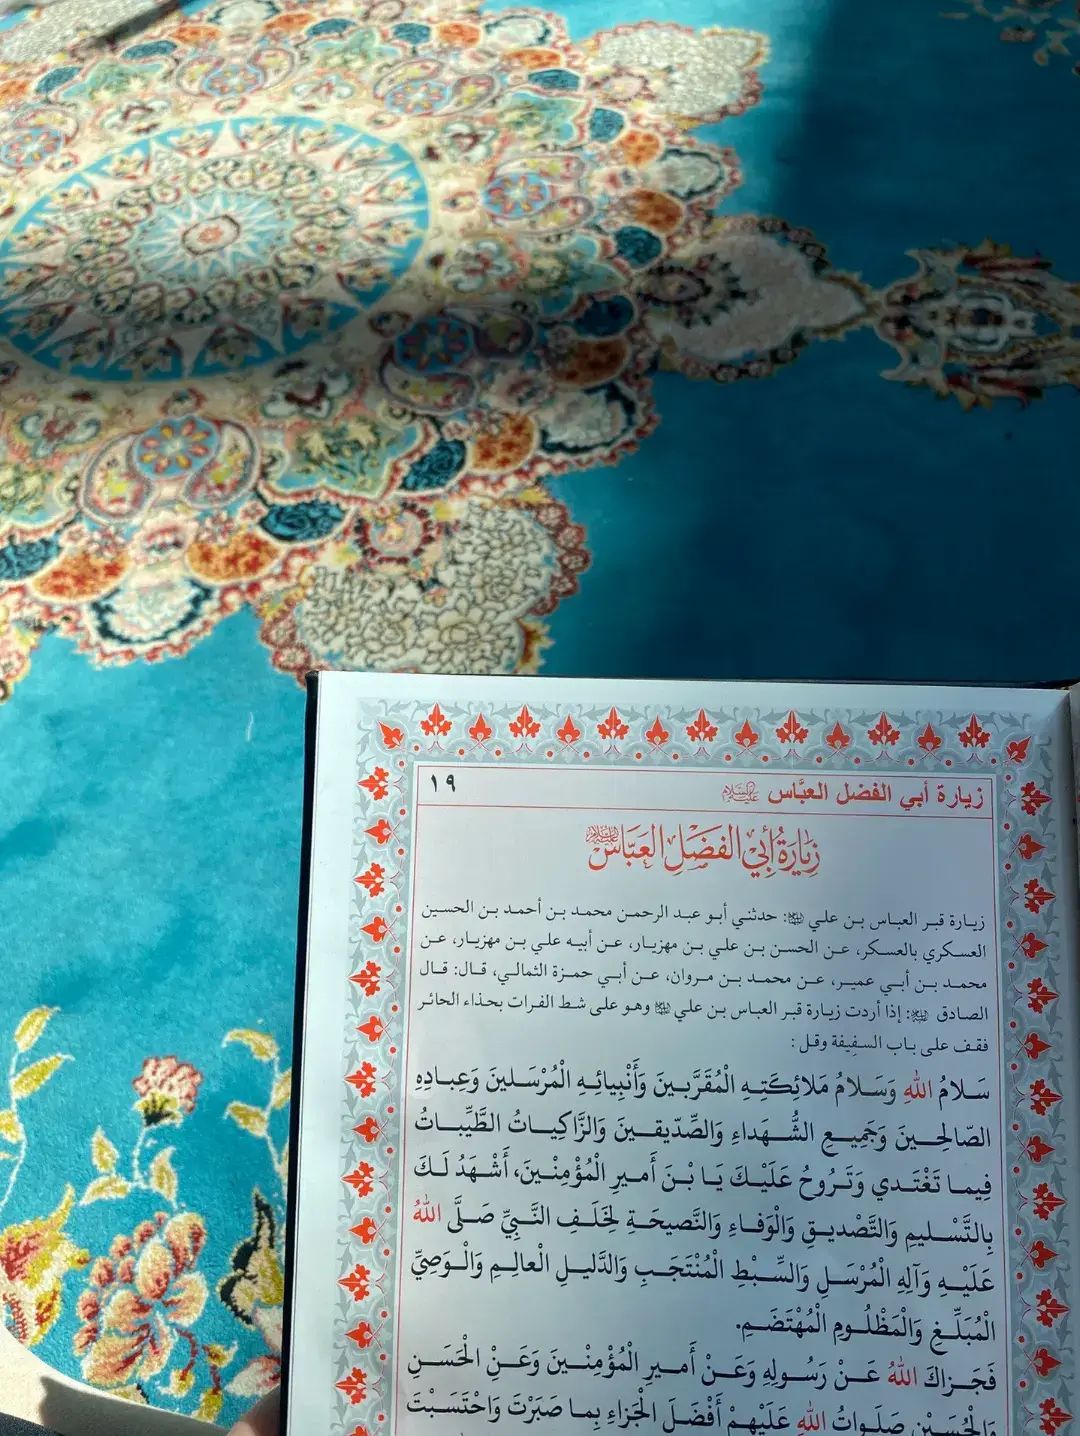 زيارة أبي الفضل العبَّاس عليه السلام ١٩
زِيَارَةُ أَبِي الفَضْلِ العَبَّاسِ عليه السلام
زيارة قبر العباس بن علي عليه السلام: حدثني أبو عبد الرحمن محمد بن أحمد بن الحسين
العسكري بالعسكر، عن الحسن بن علي بن مهزيار، عن أبيه علي بن مهزيار، عن
محمد بن أبي عمير، عن محمد بن مروان، عن أبي حمزة الثمالي، قال: قال
الصادق عليه السلام: إذا أردت زيارة قبر العباس بن علي عليه السلام وهو على شط الفرات بحذاء الحائر
فقف على باب السقيفة وقل:
سَـلامُ اللهِ وَسَـلامُ مَلائِكَتِـهِ الْمُقَرَّبـينَ وَأَنْبِيائِـهِ الْمُرْسَـلينَ وَعِبـادِهِ
الصّالِحـينَ وَجَمِيـعِ الشُّـهَداءِ وَالصِّدّيقـينَ وَالزَّاكِيـاتُ الطَّيِّبـاتُ
فِيمـا تَغْتَـدي وَتَـرُوحُ عَلَيْـكَ يَـا بْـنَ أَمـيرِ الْمُؤْمِنْـينَ، أَشْـهَدُ لَـكَ
بِالتَّسْـليمِ وَالتَّصْديـقِ وَالْوَفـاءِ وَالنَّصيحَـةِ لِخَلَـفِ النَّـبِيِّ صَـلَّى اللهُ
عَلَيْـهِ وَآلِهِ الْمُرْسَـلِ وَالسِّـبْطِ الْمُنْتَجَـبِ وَالدَّليـلِ الْعالِـمِ وَالْـوَصِيِّ
الْمُبَلِّـغِ وَالْمَظْلُـومِ الْمُهْتَضَـمِ.
فَجَـزاكَ اللهُ عَـنْ رَسُـولِهِ وَعَـنْ أَمـيرِ الْمُؤْمِنْـينَ وَعَـنْ الْحَسَـنِ
وَالْحُسَـيْنِ صَلَـواتُ اللهِ عَلَيْهِـمْ أَفْضَـلَ الْجَزاءِ بِمـا صَبَرْتَ وَاحْتَسَـبْتَ